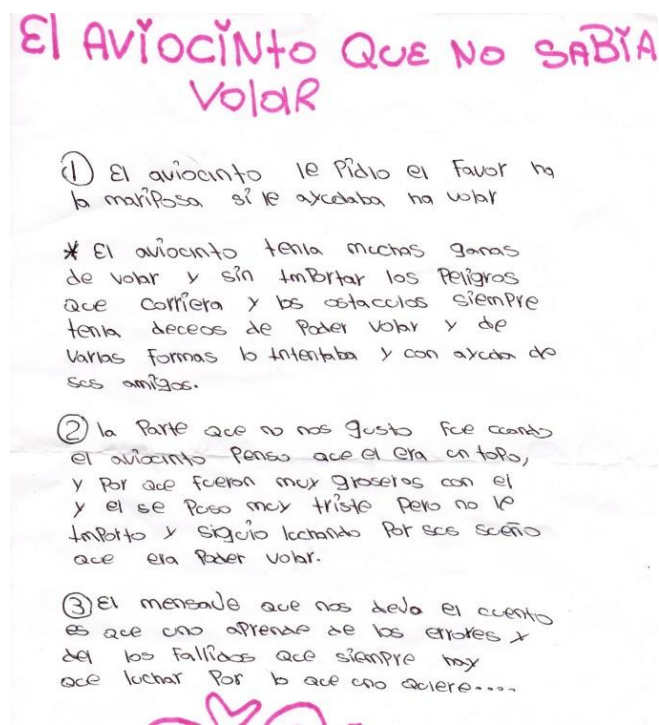 El AVIOCINTO QUE NO SABIA
VOlaR
① El aviocinto le Pidio el Favor ha
la mariPosa si le aycdaba ha volar
* El aviocinto tenia mcchas ganas
de volar y sin imPortar los Peligros
qce corriera y los ostaccclos siemPre
tenia deceos de Poder volar y de
varias formas lo intentaba y con aycda de
scs amigos.
② la Parte qce no nos gusto Fce ccando
el aviocinto Penso qce el era cn toPo,
y Por qce fceron mcy groseros con el
y el se Pcso mcy triste Pero no le
imPorto y sigcio lcchando Por scs sceño
qce era Poder volar.
③ El mensaje qce nos deva el ccento
es qce cno aPrende de los errores y
del los Fallidos qce siemPre hay
qce lcchar Por lo qce cno qciere....